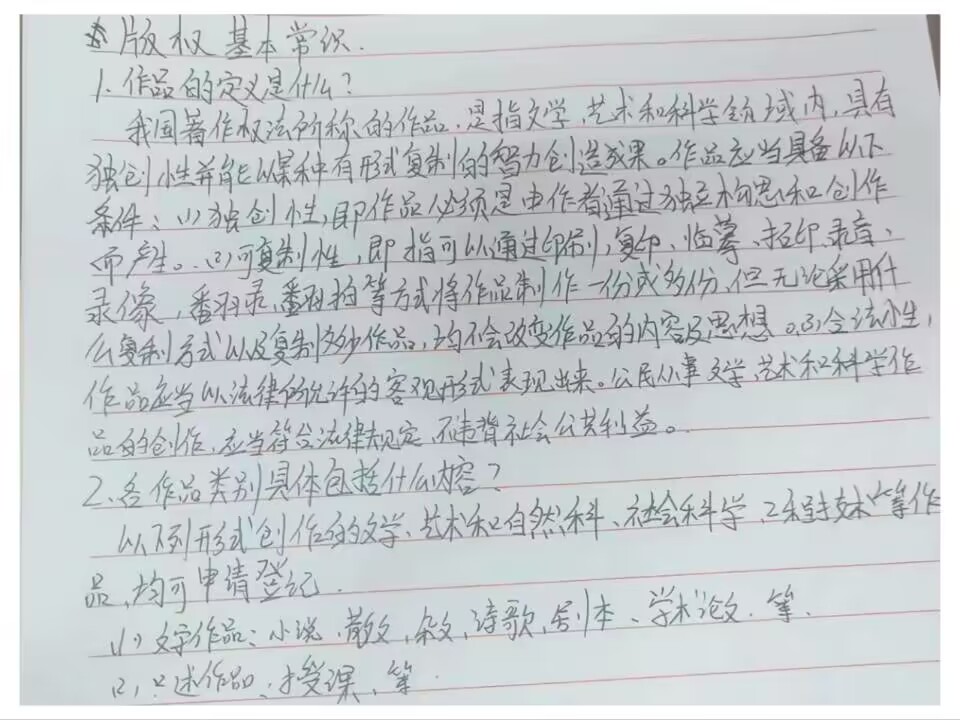 ※版权基本常识.
1.作品的定义是什么?
我国著作权法所称的作品,是指文学、艺术和科学领域内,具有
独创性并能以某种有形式复制的智力创造成果。作品应当具备以下
条件:(1)独创性,即作品必须是由作者通过独立构思和创作
而产生。(2)可复制性,即指可以通过印刷,复印、临摹、拓印、录音、
录像,翻录,翻拍等方式将作品制作一份或多份,但无论采用什
么复制方式以及复制多少作品,均不会改变作品的内容及思想。(3)合法性,
作品应当以法律所允许的客观形式表现出来。公民从事文学、艺术和科学作
品的创作,应当符合法律规定,不违背社会公共利益。
2.各作品类别具体包括什么内容?
以下列形式创作的文学、艺术和自然科、社会科学、工程技术等作
品,均可申请登记.
(1)文字作品:小说、散文,杂文,诗歌,剧本、学术论文.等.
(2)口述作品、授课、等.